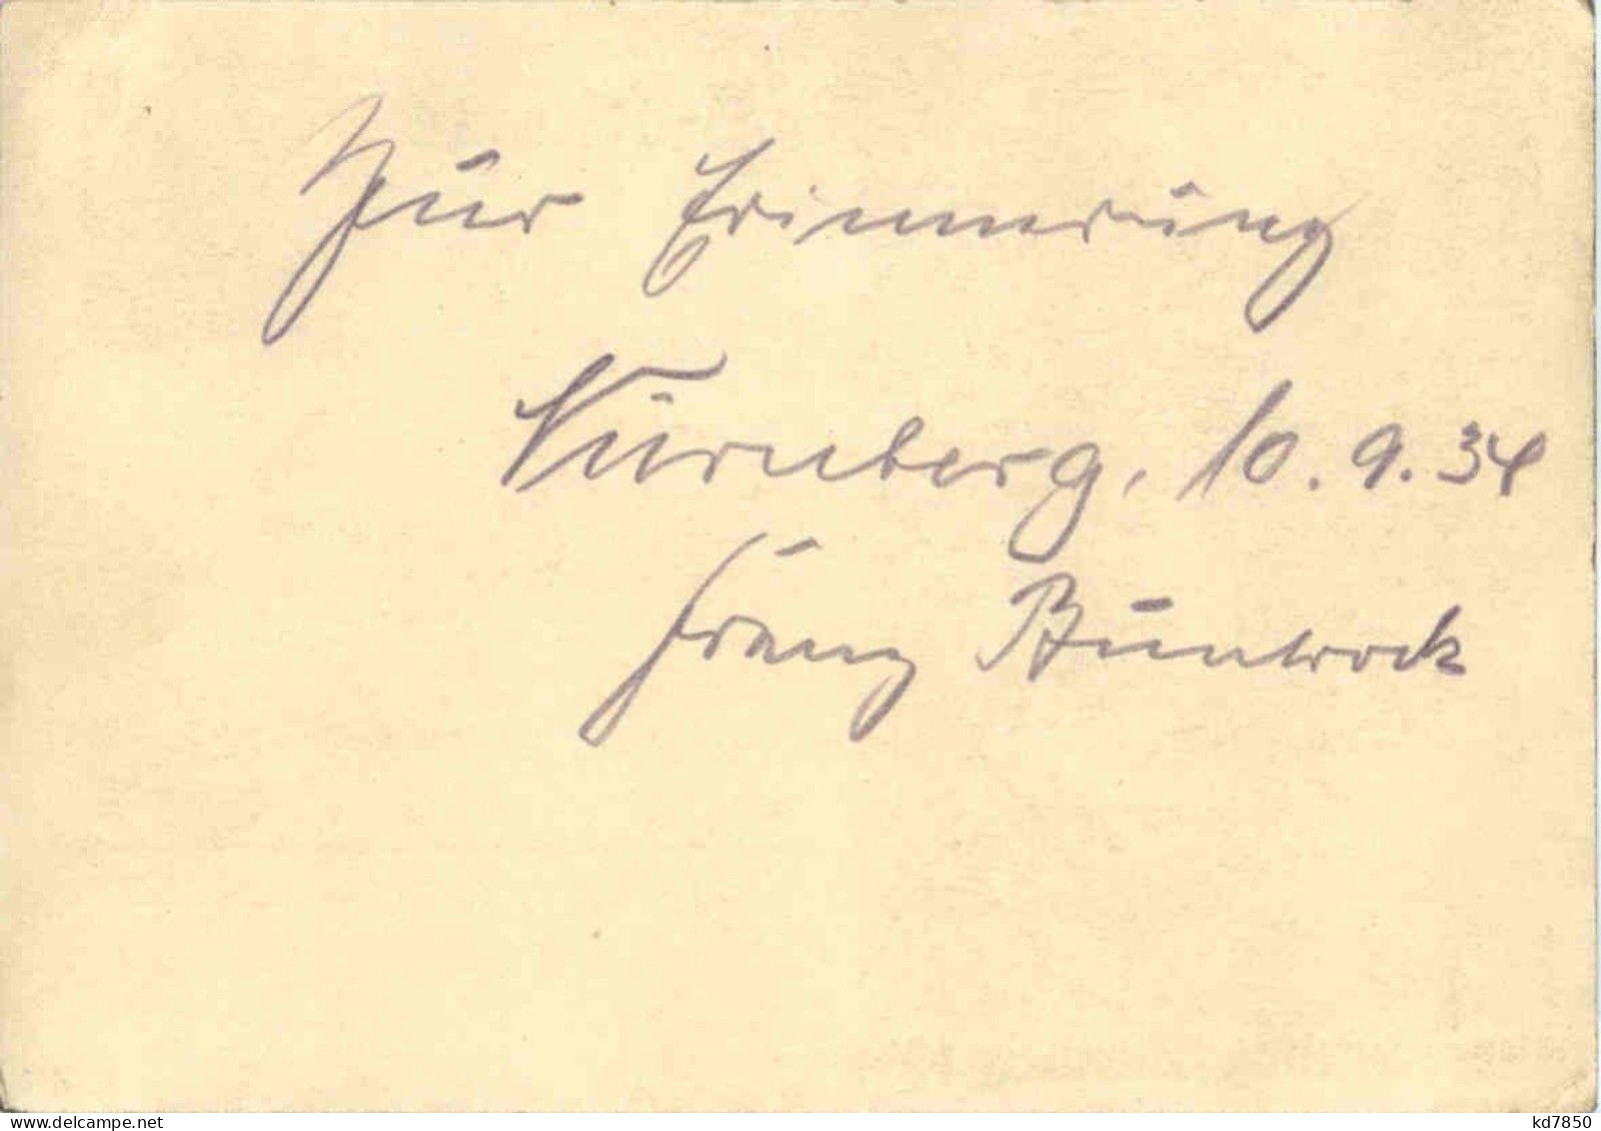 Zur Erinnerung
Nürnberg, 10.9.34
Franz Buntrock
delcampe.net
kd7850